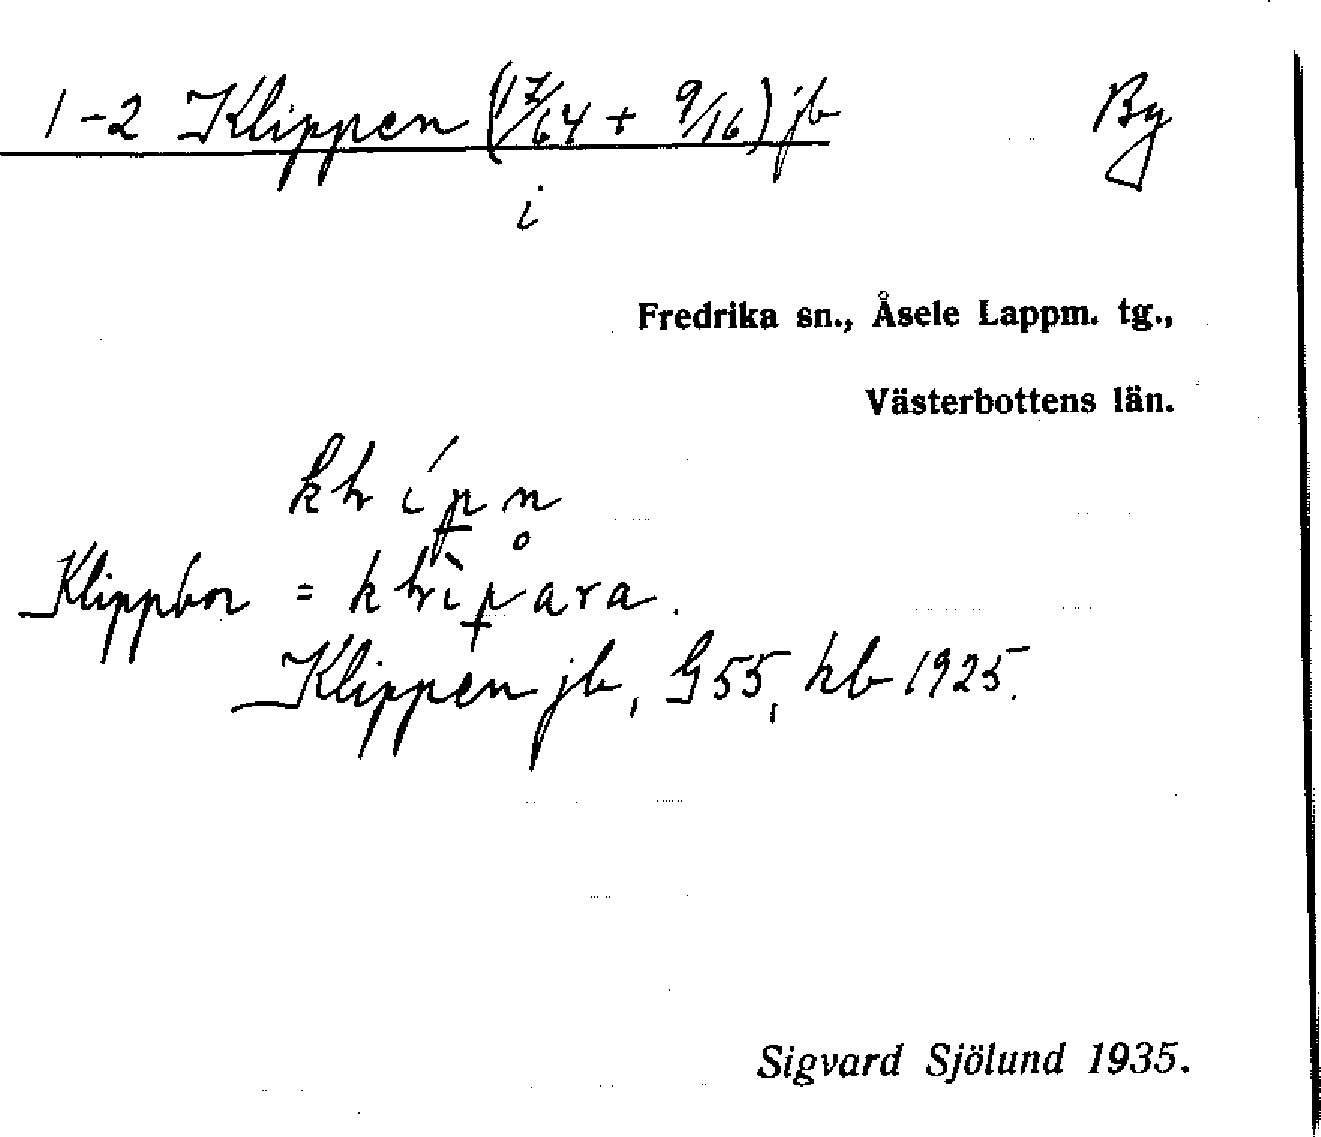 1-2 Klippen (17/64 + 9/16) jb By
i
Fredrika sn., Åsele Lappm. tg.,
Västerbottens län.
Klippbor =
Klippen jb, G55, kb 1925.
Sigvard Sjölund 1935.